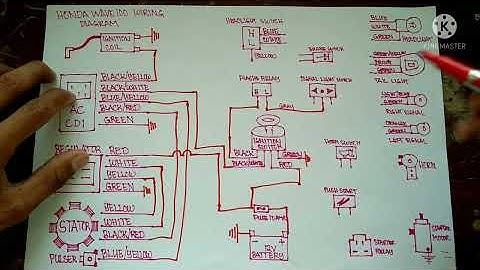 HONDA WAVE 100 WIRING
DIAGRAM
IGNITION
COIL
BLACK/YELLOW
BLACK/WHITE
BLUE/YELLOW
BLACK/RED
GREEN
AC
CDI
REGULATOR
RED
WHITE
YELLOW
GREEN
YELLOW
WHITE
BLACK/RED
STATOR
PULSER
BLUE/YELLOW
HEADLIGHT SWITCH
H
L
BLUE
WHITE
YELLOW
BRAKE SWITCH
FLASHER RELAY
SIGNAL LIGHT SWITCH
GRAY
IGNITION
SWITCH
BLACK
BLACK/WHITE
GREEN
RED
FUSE 10 AMP
12V
BATTERY
HORN SWITCH
PUSH START
STARTER
RELAY
BLUE
WHITE
GREEN
HEADLIGHT
GREEN/YELLOW
BROWN
GREEN
TAIL LIGHT
GREEN
RIGHT SIGNAL
ORANGE
GREEN
LEFT SIGNAL
HORN
MOTOR
KINEMASTER